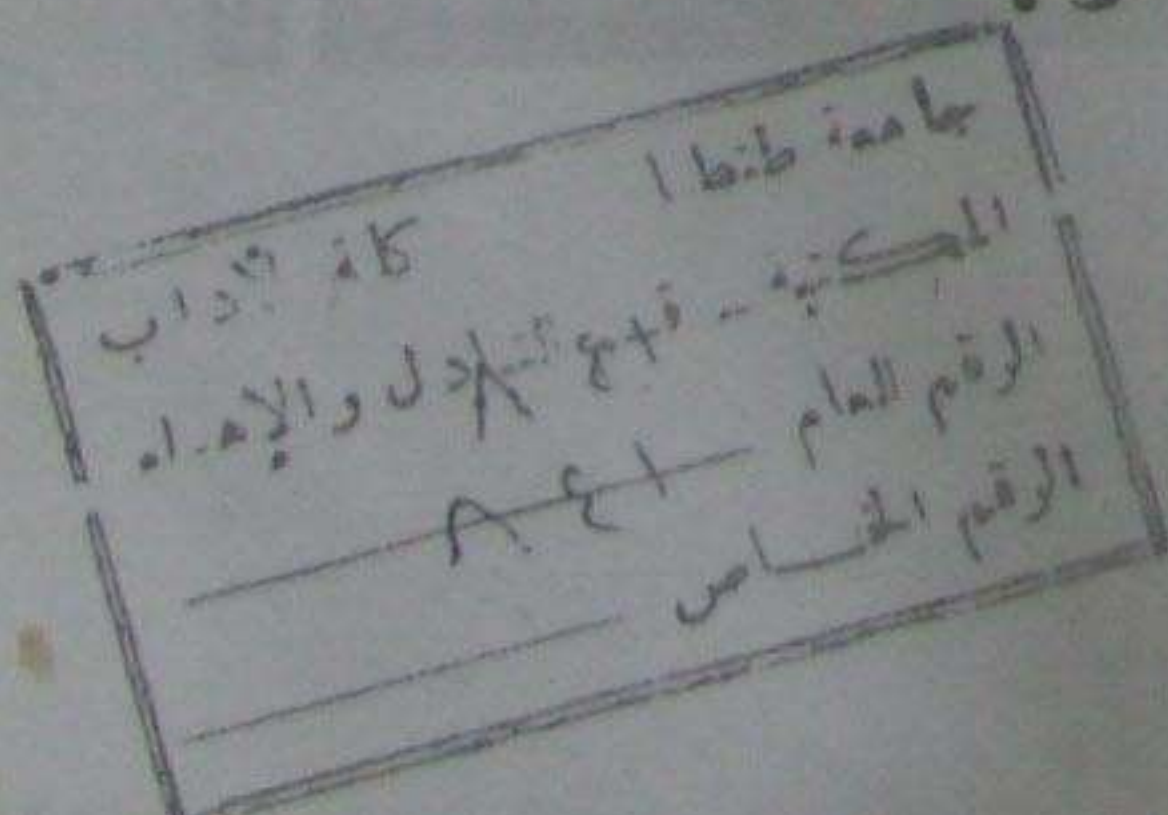 جامعة طنطا كلية الآداب
المكتبة - فرع التبادل والإهداء
الرقم العام ٨٤١
الرقم الخاص